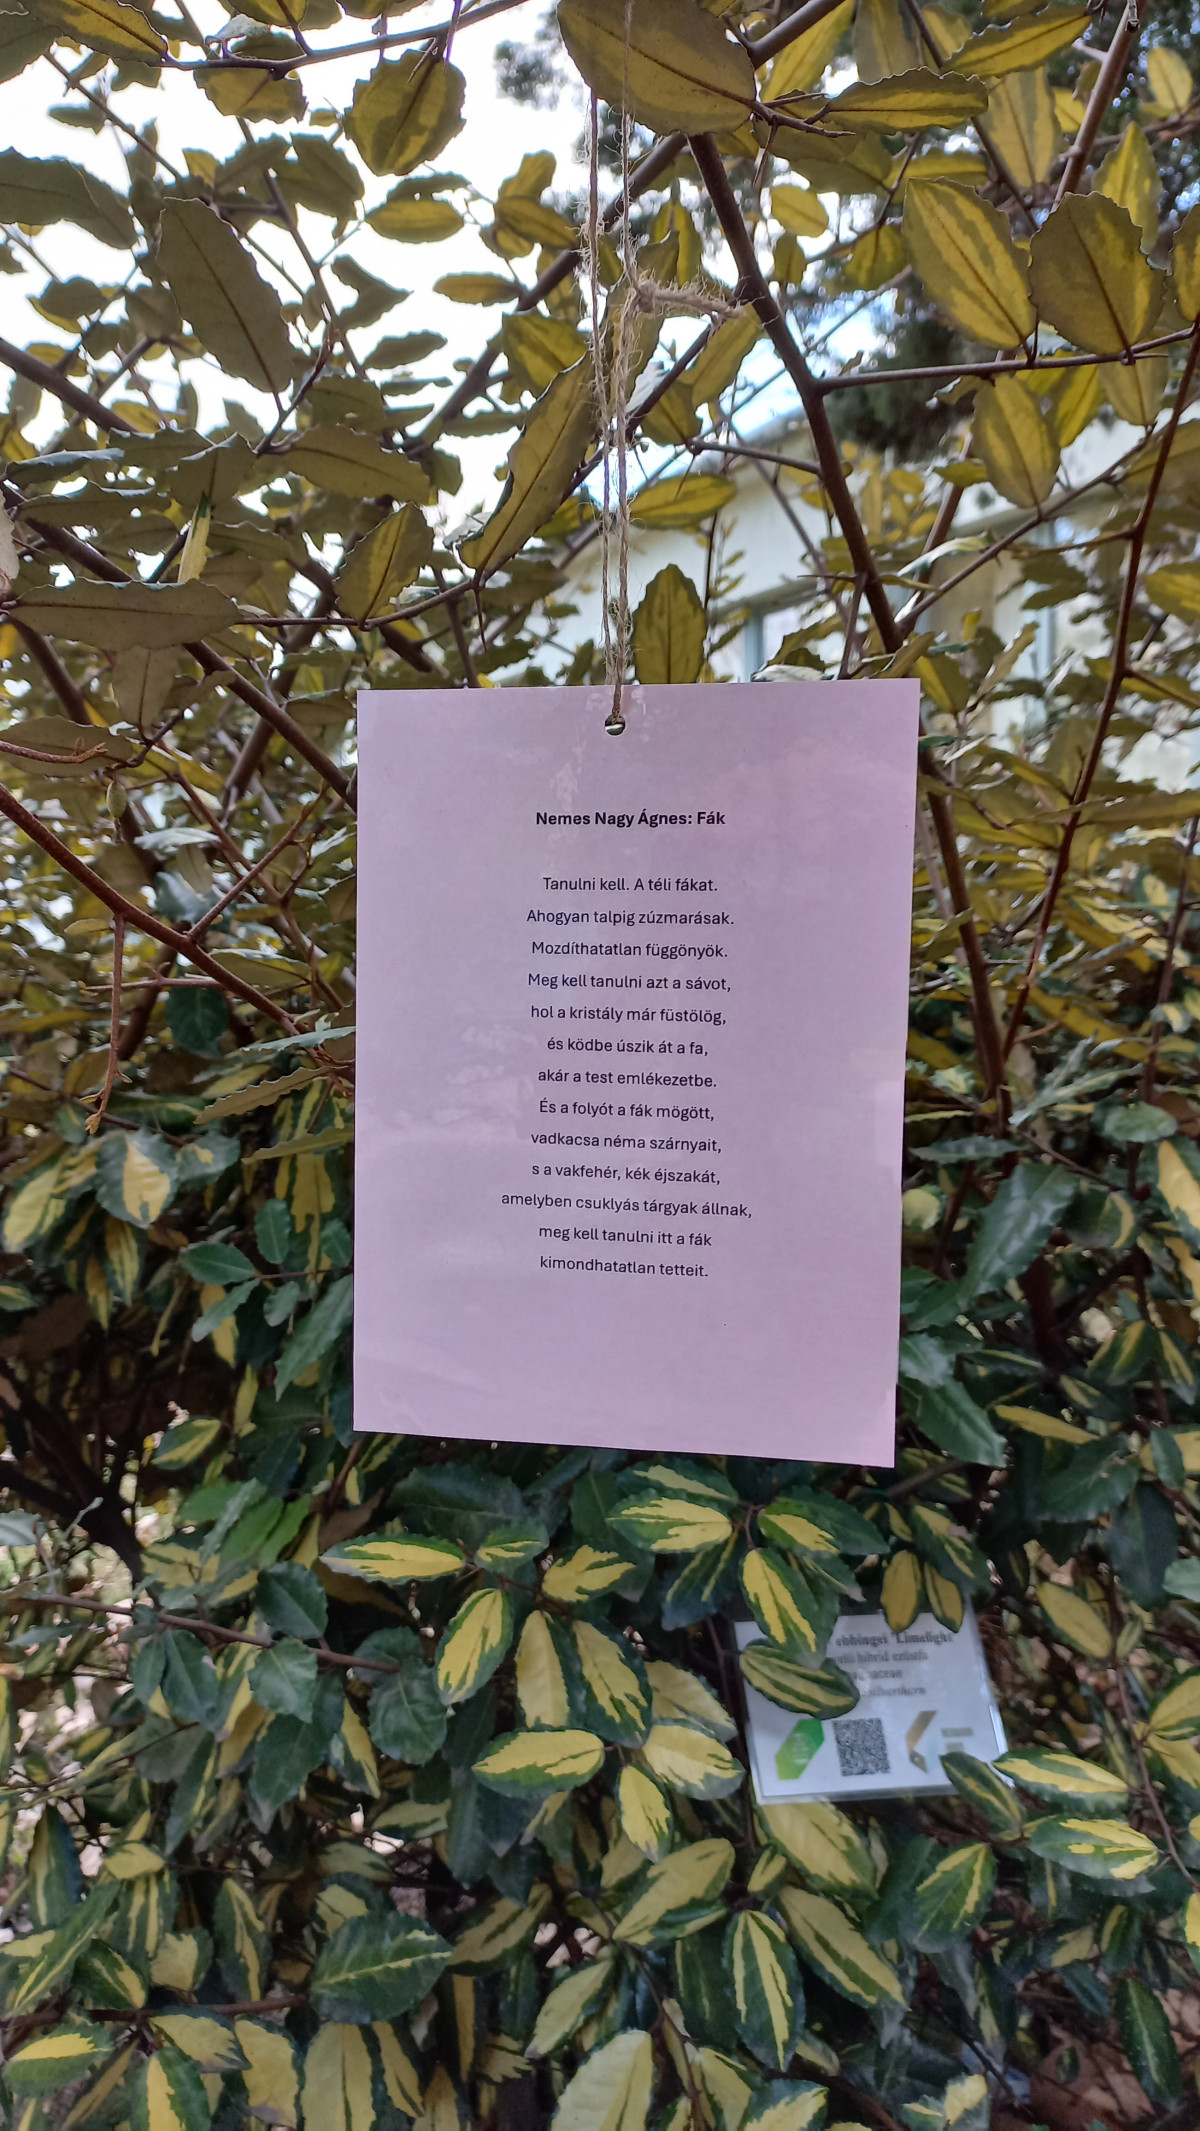 Nemes Nagy Ágnes: Fák
Tanulni kell. A téli fákat.
Ahogyan talpig zúzmarásak.
Mozdíthatatlan függönyök.
Meg kell tanulni azt a sávot,
hol a kristály már füstölög,
és ködbe úszik át a fa,
akár a test emlékezetbe.
És a folyót a fák mögött,
vadkacsa néma szárnyait,
s a vakfehér, kék éjszakát,
amelyben csuklyás tárgyak állnak,
meg kell tanulni itt a fák
kimondhatatlan tetteit.
ebbingei 'Limelight'
hibrid ezüstfa